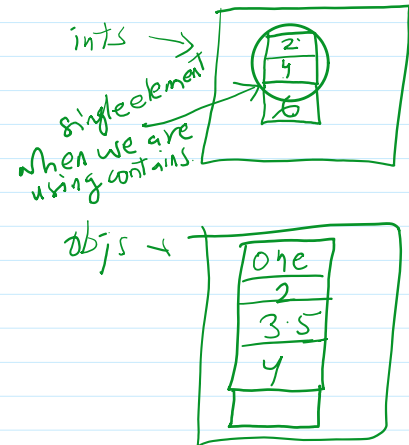 ints →
2
4
6
single element
when we are
using contains.
objs →
one
2
3.5
4